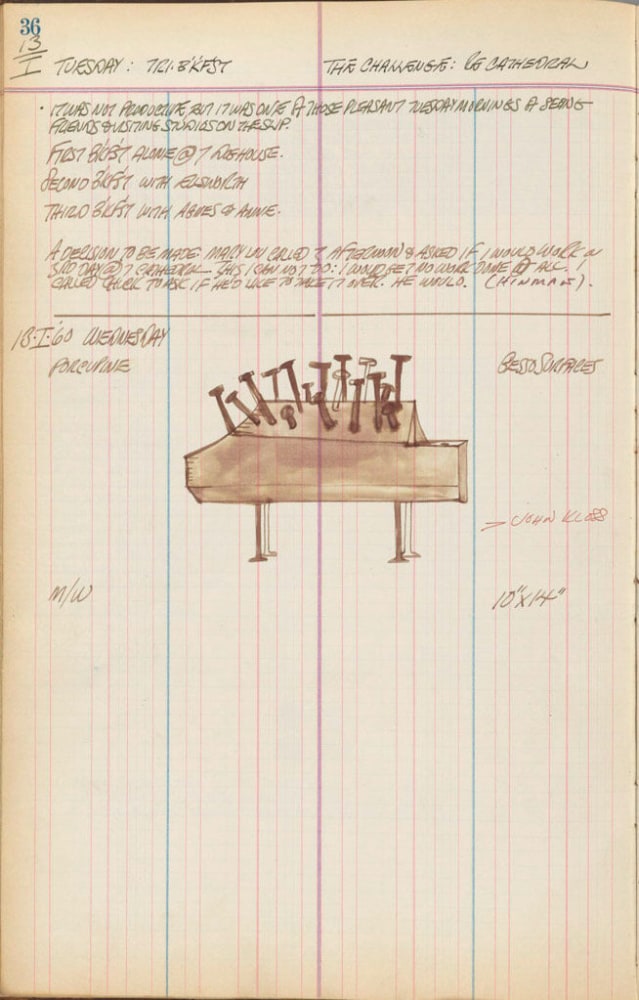 36
13
I TUESDAY: TRI-B'KF'ST THE CHALLENGE: RE CATHEDRAL
• IT WAS NOT PRODUCTIVE BUT IT WAS ONE OF THOSE PLEASANT TUESDAY MORNINGS OF SEEING
FRIENDS & VISITING STUDIOS ON THE SLIP.
FIRST B'KF'ST ALONE @ 7 HOUSE.
SECOND B'KF'ST WITH ELLSWORTH
THIRD B'KF'ST WITH AGNES & ANNE.
A DECISION TO BE MADE: MARY LOU CALLED AFTERNOON & ASKED IF I WOULD WORK A
3RD DAY @ CATHEDRAL— THIS I CAN NOT DO: I WOULD GET NO WORK DONE AT ALL. I
CALLED CHUCK TO ASK IF HE'D LIKE TO TAKE IT OVER. HE WOULD. (HINMAN).
13·I·60 WEDNESDAY
PORCUPINE GESSO SURFACES
JOHN KLOSS
M/W 10"X14"